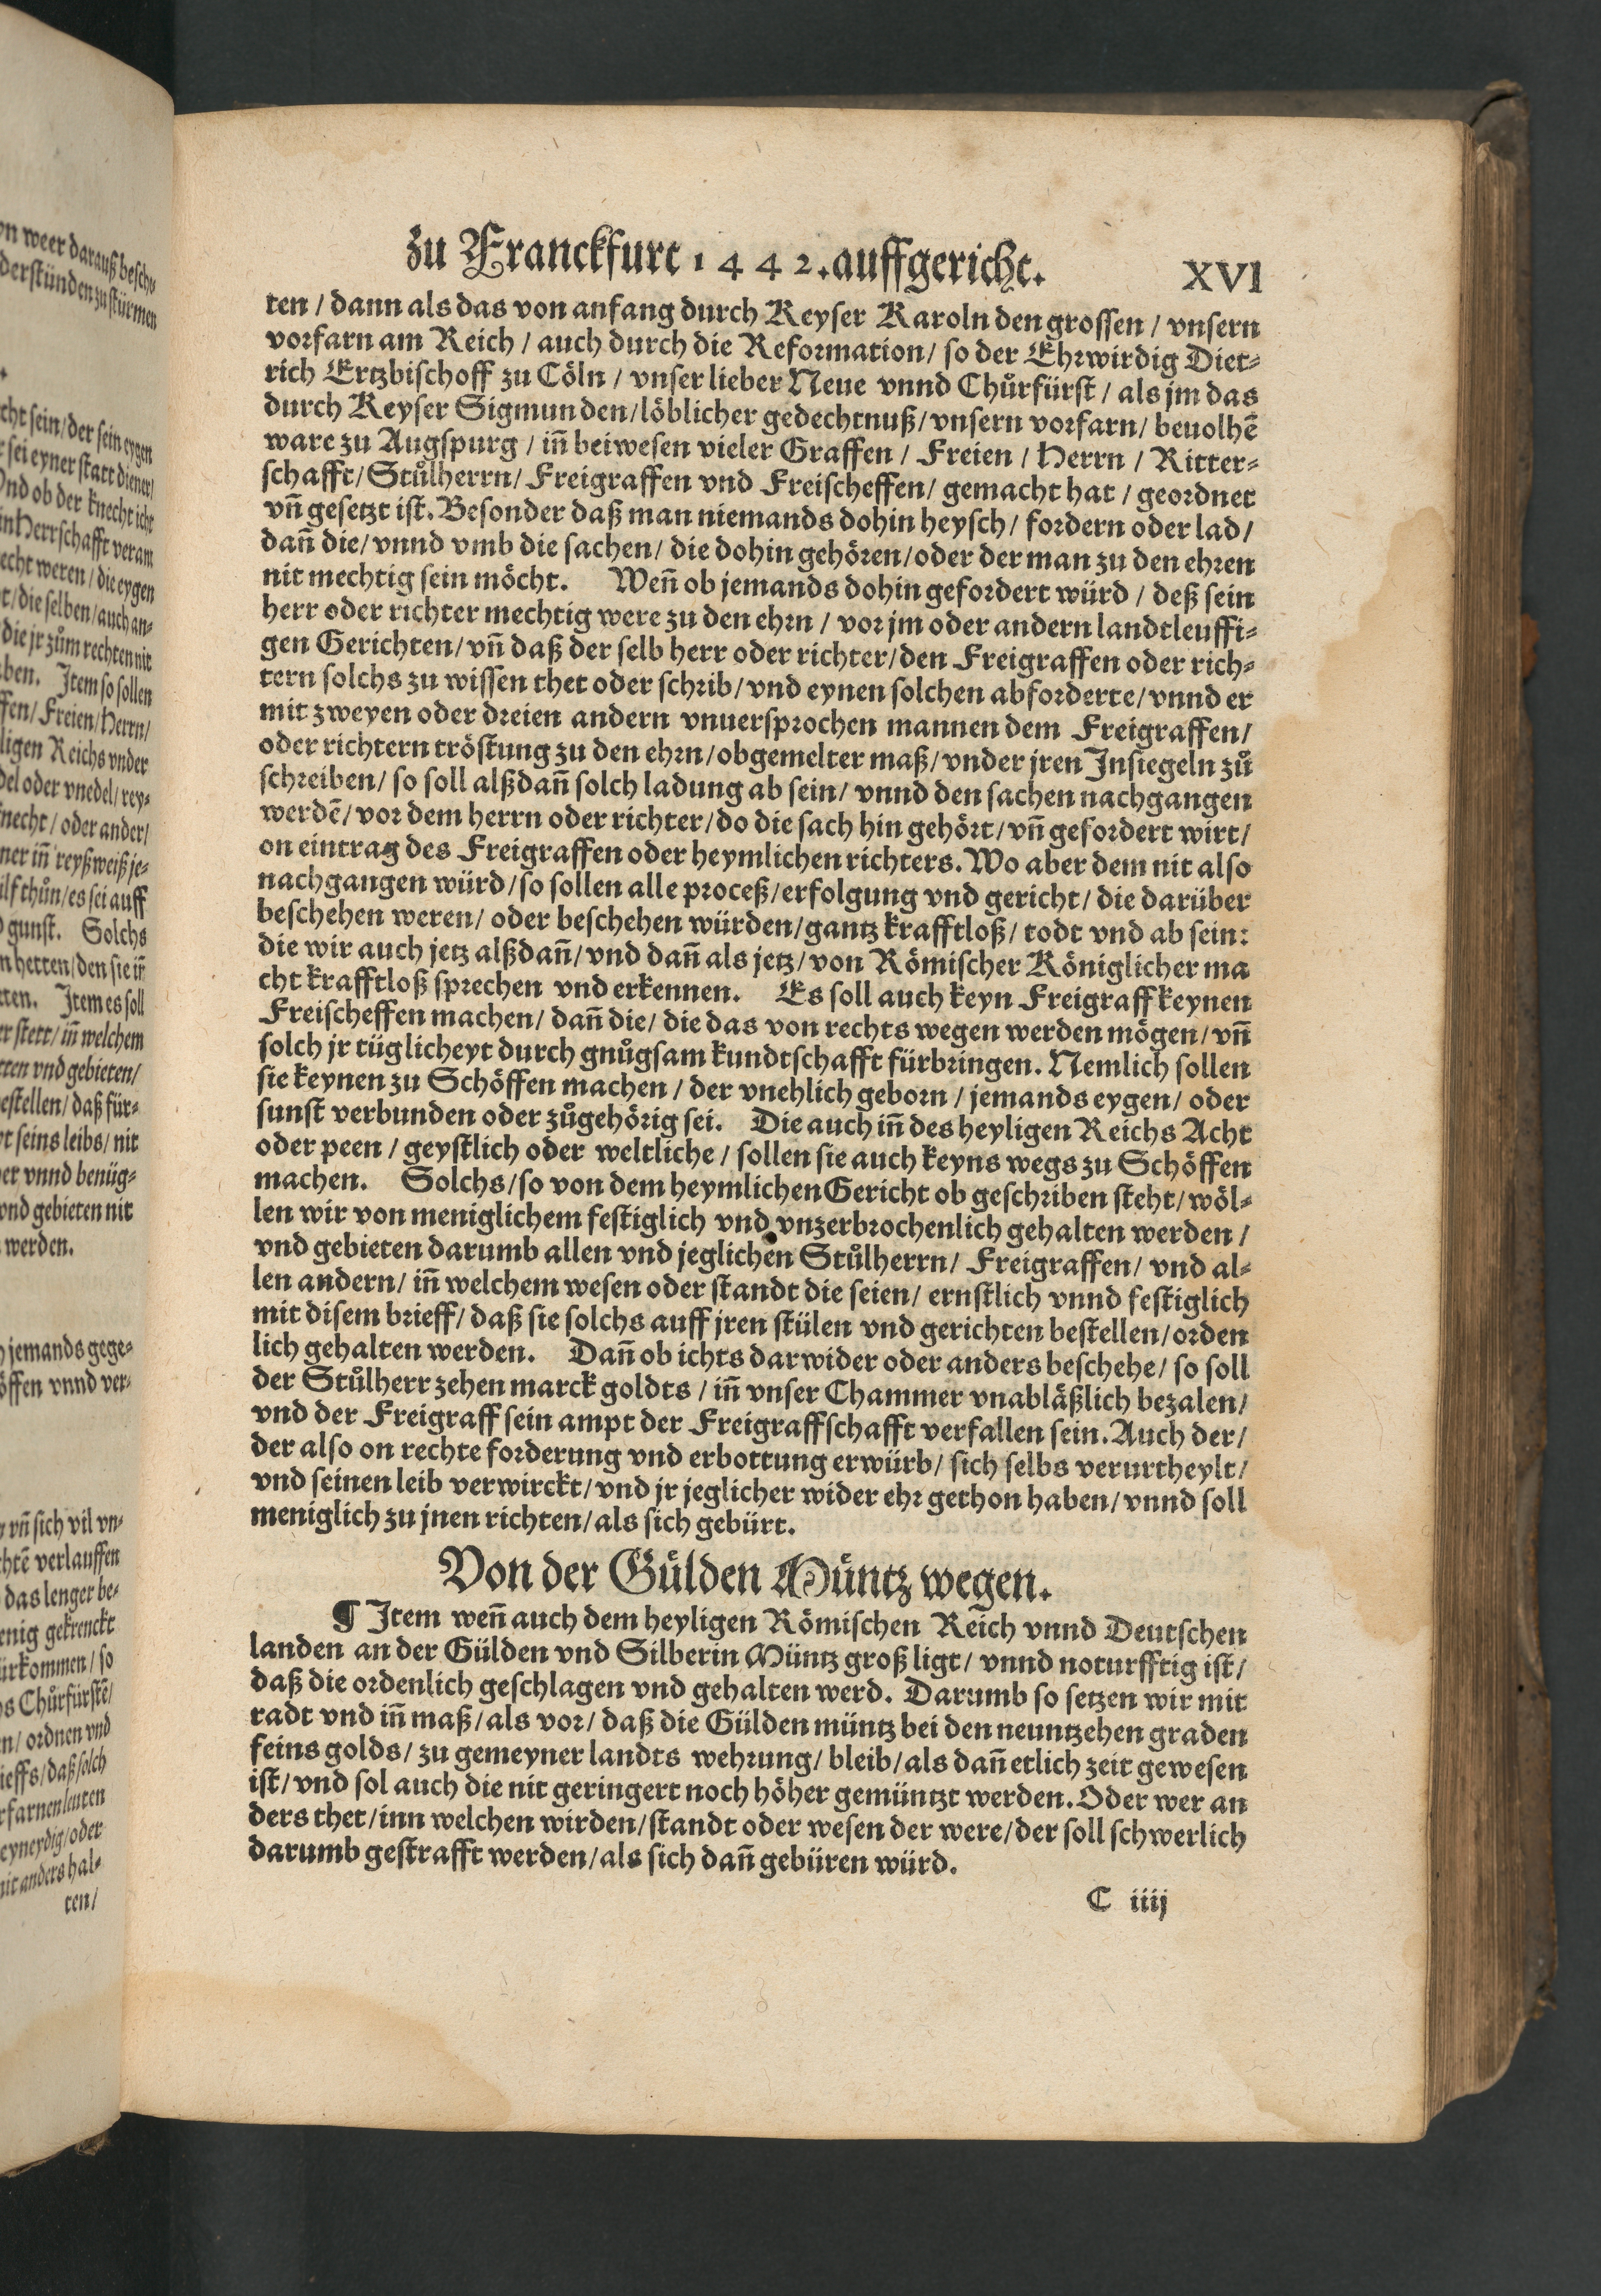 on weer darauß beschu-
derstünden zu stürmen
cht sein/der sein eygen
sei eyner statt diener/
Vnd ob der knecht icht
in Herrschafft veram
echt weren/die eygen
t/die selben/auch an-
die jr zům rechten nit
ben. Item so sollen
ffen/Freien/Herrn/
ligen Reichs vnder
del oder vnedel/rey-
necht/oder ander/
ner iñ reyßweiß je-
ilf thůn/es sei auff
gunst. Solchs
n hetten/den sie iñ
tten. Item es soll
er stett/iñ welchem
tten vnd gebieten/
estellen/daß für-
yt seins leibs/nit
er vnnd benüg-
vnd gebieten nit
werden.
jemands gege-
öffen vnnd ver-
vñ sich vil vn-
chtẽ verlauffen
das lenger be-
enig gekrenckt
ürkommen/so
s Chůrfürstẽ/
n/ordnen vnd
ieffs/daß solch
rfarnen leuten
eyneydig/oder
nit anders hal-
ten/
zu Franckfurt 1442. auffgericht. XVI
ten / dann als das von anfang durch Keyser Karoln den grossen / vnsern
vorfarn am Reich / auch durch die Reformation/ so der Ehrwirdig Diet-
rich Ertzbischoff zu Cöln / vnser lieber Neue vnnd Chůrfürst / als jm das
durch Keyser Sigmunden/löblicher gedechtnuß/vnsern vorfarn/ beuolhẽ
ware zu Augspurg / iñ beiwesen vieler Graffen / Freien / Herrn / Ritter-
schafft/Stůlherrn/Freigraffen vnd Freischeffen/ gemacht hat / geordnet
vñ gesetzt ist. Besonder daß man niemands dohin heysch/ fordern oder lad/
dañ die/vnnd vmb die sachen/ die dohin gehören/oder der man zu den ehren
nit mechtig sein möcht. Weñ ob jemands dohin gefordert würd / deß sein
herr oder richter mechtig were zu den ehrn / vor jm oder andern landtleuffi-
gen Gerichten/vñ daß der selb herr oder richter/den Freigraffen oder rich-
tern solchs zu wissen thet oder schrib/vnd eynen solchen abforderte/vnnd er
mit zweyen oder dreien andern vnuersprochen mannen dem Freigraffen/
oder richtern tröstung zu den ehrn/obgemelter maß/vnder jren Insiegeln zů
schreiben/ so soll alßdañ solch ladung ab sein/ vnnd den sachen nachgangen
werdẽ/vor dem herrn oder richter/do die sach hin gehört/vñ gefordert wirt/
on eintrag des Freigraffen oder heymlichen richters. Wo aber dem nit also
nachgangen würd/so sollen alle proceß/erfolgung vnd gericht/ die darüber
beschehen weren/ oder beschehen würden/gantz krafftloß/ todt vnd ab sein:
die wir auch jetz alßdañ/vnd dañ als jetz/von Römischer Königlicher ma
cht krafftloß sprechen vnd erkennen. Es soll auch keyn Freigraff keynen
Freischeffen machen/ dañ die/ die das von rechts wegen werden mögen/vñ
solch jr tüglicheyt durch gnůgsam kundtschafft fürbringen. Nemlich sollen
sie keynen zu Schöffen machen / der vnehlich geborn / jemands eygen/ oder
sunst verbunden oder zůgehörig sei. Die auch iñ des heyligen Reichs Acht
oder peen / geystlich oder weltliche / sollen sie auch keyns wegs zu Schöffen
machen. Solchs/so von dem heymlichen Gericht ob geschriben steht/wöl-
len wir von meniglichem festiglich vnd vnzerbrochenlich gehalten werden /
vnd gebieten darumb allen vnd jeglichen Stůlherrn/ Freigraffen/ vnd al-
len andern/ iñ welchem wesen oder standt die seien/ ernstlich vnnd festiglich
mit disem brieff/ daß sie solchs auff jren stülen vnd gerichten bestellen/orden
lich gehalten werden. Dañ ob ichts darwider oder anders beschehe/ so soll
der Stůlherr zehen marck goldts / iñ vnser Chammer vnabläßlich bezalen/
vnd der Freigraff sein ampt der Freigraffschafft verfallen sein. Auch der/
der also on rechte forderung vnd erbottung erwürb/ sich selbs verurtheylt/
vnd seinen leib verwirckt/vnd jr jeglicher wider ehr gethon haben/vnnd soll
meniglich zu jnen richten/als sich gebürt.
Von der Gülden Müntz wegen.
¶ Item weñ auch dem heyligen Römischen Reich vnnd Deutschen
landen an der Gülden vnd Silberin Müntz groß ligt/ vnnd noturfftig ist/
daß die ordenlich geschlagen vnd gehalten werd. Darumb so setzen wir mit
radt vnd iñ maß/als vor/ daß die Gülden müntz bei den neuntzehen graden
feins golds/ zu gemeyner landts wehrung/ bleib/als dañ etlich zeit gewesen
ist/vnd sol auch die nit geringert noch höher gemüntzt werden. Oder wer an
ders thet/inn welchen wirden/standt oder wesen der were/der soll schwerlich
darumb gestrafft werden/als sich dañ gebüren würd.
C iiij